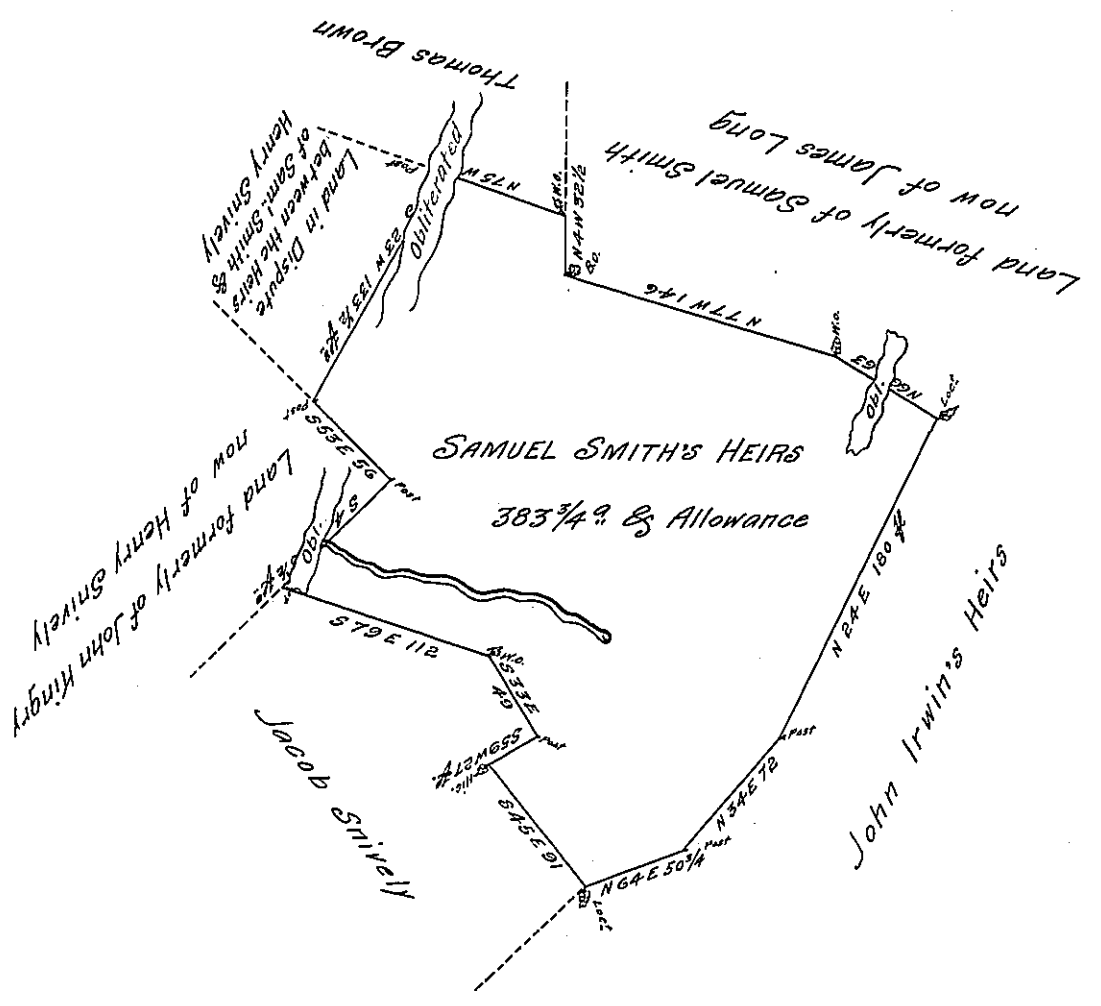 Thomas Brown
Land formerly of Samuel Smith
now of James Long
Land in Dispute
between the Heirs
of Saml. Smith &
Henry Snively
Post
Obliterated
N75W
W.O.
N4W 32½
B.O.
N77W 146
W.O.
N60 63
Obl.
Locst
23 W 133½ ps
Post
S53E 56
Post
SAMUEL SMITH'S HEIRS
383¾ a. & Allowance
Land formerly of John Kingry
now of Henry Snively
S4
Obl.
S79E 112
W.O.
S33E
49
Post
S59W27 ps.
Hic.
S45E91
Locst
N64E 50¾
Post
N34E72
Post
N24E 180 ps
John Irwin's Heirs
Jacob Snively